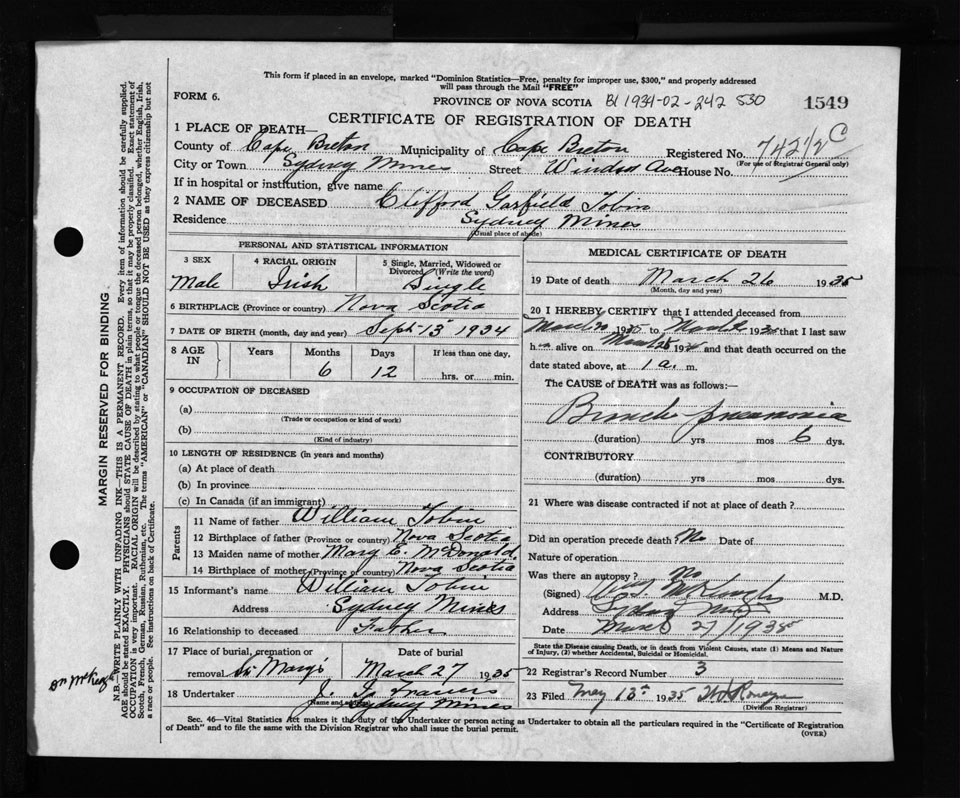 This form if placed in an envelope, marked "Dominion Statistics—Free, penalty for improper use, $300," and properly addressed
will pass through the Mail "FREE"
FORM 6.
PROVINCE OF NOVA SCOTIA B1 1934-02-242 530
1549
CERTIFICATE OF REGISTRATION OF DEATH
1 PLACE OF DEATH—
County of Cape Breton Municipality of Cape Breton Registered No. 742½ C
(For use of Registrar General only)
City or Town Sydney Mines Street Windsor Ave House No.
If in hospital or institution, give name
2 NAME OF DECEASED Clifford Garfield Tobin
Residence Sydney Mines
(Usual place of abode)
PERSONAL AND STATISTICAL INFORMATION
3 SEX 4 RACIAL ORIGIN 5 Single, Married, Widowed or Divorced (Write the word)
Male Irish Single
6 BIRTHPLACE (Province or country) Nova Scotia
7 DATE OF BIRTH (month, day and year) Sept 13 1934
8 AGE IN Years Months Days If less than one day,
6 12 hrs. or min.
9 OCCUPATION OF DECEASED
(a)
(Trade or occupation or kind of work)
(b)
(Kind of industry)
10 LENGTH OF RESIDENCE (in years and months)
(a) At place of death
(b) In province
(c) In Canada (if an immigrant)
Parents
11 Name of father William Tobin
12 Birthplace of father (Province or country) Nova Scotia
13 Maiden name of mother Mary C. McDonald
14 Birthplace of mother (Province or country) Nova Scotia
15 Informant's name William Tobin
Address Sydney Mines
16 Relationship to deceased Father
17 Place of burial, cremation or Date of burial
removal St. Mary's March 27 1935
18 Undertaker J. G. Francis
(Name and address) Sydney Mines
MEDICAL CERTIFICATE OF DEATH
19 Date of death March 26 1935
(Month, day and year)
20 I HEREBY CERTIFY that I attended deceased from
193 to 193 that I last saw
h alive on 193 and that death occurred on the
date stated above, at 1 a. m.
The CAUSE of DEATH was as follows:
Broncho pneumonia
(duration) yrs mos 6 dys.
CONTRIBUTORY
(duration) yrs mos dys.
21 Where was disease contracted if not at place of death?
Did an operation precede death? No Date of
Nature of operation
Was there an autopsy? No
(Signed) M.D.
Address Sydney Mines
Date March 27/1935
State the Disease causing Death, or in death from Violent Causes, state (1) Means and Nature
of Injury, (2) whether Accidental, Suicidal or Homicidal.
22 Registrar's Record Number 3
23 Filed May 13th 1935
(Division Registrar)
Sec. 46—Vital Statistics Act makes it the duty of the Undertaker or person acting as Undertaker to obtain all the particulars required in the "Certificate of Registration
of Death" and to file the same with the Division Registrar who shall issue the burial permit.
(OVER)
MARGIN RESERVED FOR BINDING
N.B.—WRITE PLAINLY WITH UNFADING INK—THIS IS A PERMANENT RECORD. Every item of information should be carefully supplied.
AGE should be stated EXACTLY. PHYSICIANS should STATE CAUSE OF DEATH in plain terms, so that it may be properly classified. Exact statement of
OCCUPATION is very important. RACIAL ORIGIN will be described by stating to what people or tongue the deceased person belonged, whether English, Irish,
Scotch, French, German, Russian, Ruthenian, etc. The terms "AMERICAN" or "CANADIAN" SHOULD NOT BE USED as they express citizenship but not
a race or people. See Instructions on back of Certificate.